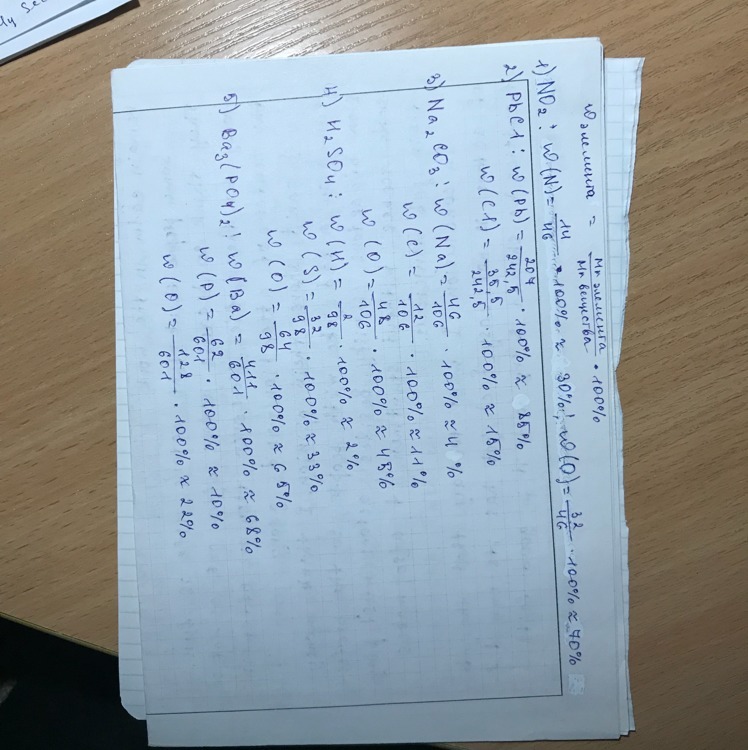 w элемента = Mr элемента / Mr вещества · 100%
1) NO2: w(N) = 14/46 · 100% ≈ 30%; w(O) = 32/46 · 100% ≈ 70%
2) PbCl: w(Pb) = 207/242,5 · 100% ≈ 85%
w(Cl) = 35,5/242,5 · 100% ≈ 15%
3) Na2CO3: w(Na) = 46/106 · 100% ≈ 4 %
w(C) = 12/106 · 100% ≈ 11%
w(O) = 48/106 · 100% ≈ 45%
4) H2SO4: w(H) = 2/98 · 100% ≈ 2%
w(S) = 32/98 · 100% ≈ 33%
w(O) = 64/98 · 100% ≈ 65%
5) Ba3(PO4)2: w(Ba) = 411/601 · 100% ≈ 68%
w(P) = 62/601 · 100% ≈ 10%
w(O) = 128/601 · 100% ≈ 22%